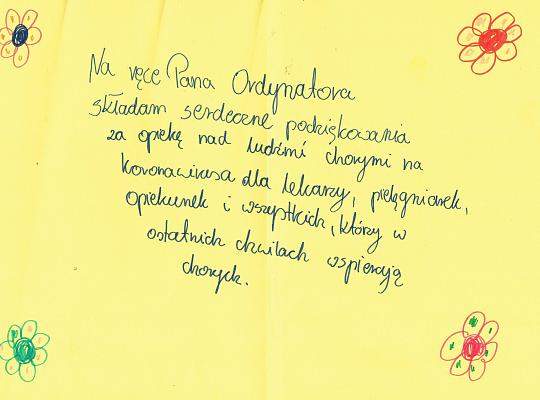 Na ręce Pana Ordynatora
składam serdeczne podziękowania
za opiekę nad ludźmi chorymi na
koronawirusa dla lekarzy, pielęgniarek,
opiekunek i wszystkich, którzy w
ostatnich chwilach wspierają
chorych.